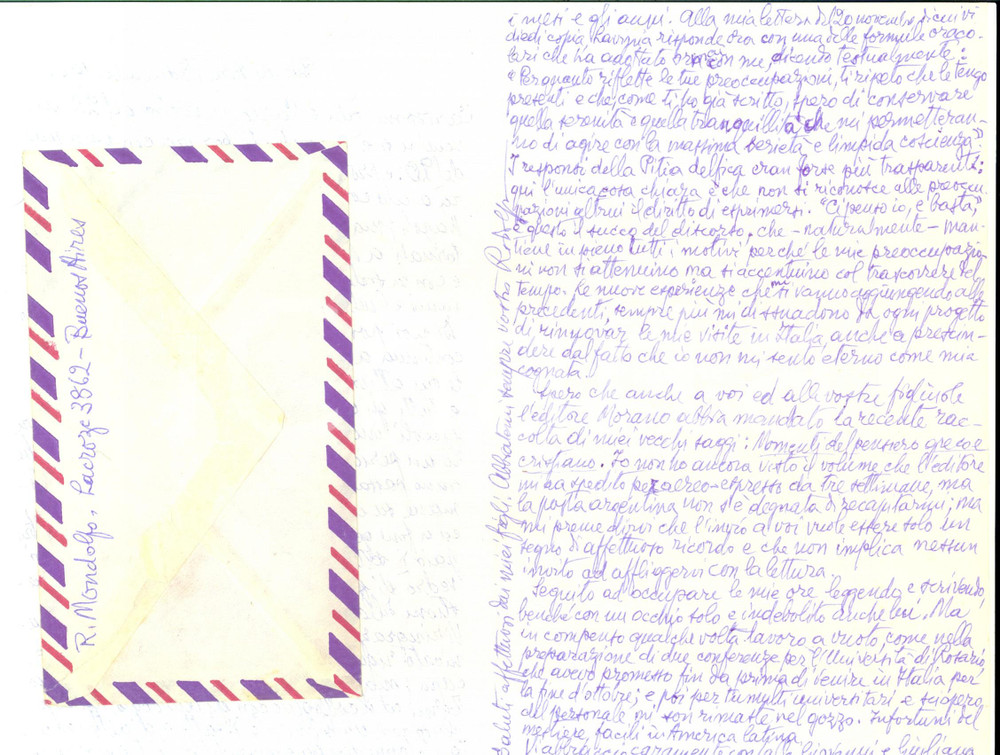 R. Mondolfo, Lacroze 3862 - Buenos Aires
i mesi e gli anni. Alla mia lettera del 20 novembre, di cui vi
diedi copia, Lavinia risponde ora con una delle formule oraco-
lari che ha adottato con me, dicendo testualmente:
"Per quanto riflette le tue preoccupazioni, ti ripeto che le tengo
presenti e che, come ti ho già scritto, spero di conservare
quella serenità e quella tranquillità che mi permetteran-
no di agire con la massima serietà e limpida coscienza".
I responsi della Pitia delfica eran forse più trasparenti:
qui l'unica cosa chiara è che non si riconosce alle preoccu-
pazioni altrui il diritto di esprimersi. "Ci penso io, e basta",
è questo il succo del discorso, che - naturalmente - man-
tiene in pieno tutti i motivi perché le mie preoccupazio-
ni non si attenuino ma si accentuino col trascorrere del
tempo. Le nuove esperienze che mi si vanno aggiungendo alle
precedenti, sempre più mi dissuadono da ogni progetto
di rinnovar le mie visite in Italia, anche a prescin-
dere dal fatto che io non mi sento eterno come mia
cognata.
Spero che anche a voi ed alle vostre figliuole
l'editore Morano abbia mandato la recente rac-
colta di miei vecchi saggi: Momenti del pensiero greco e
cristiano. Io non ho ancora visto il volume che l'editore
mi ha spedito per aereo-espresso da tre settimane, ma
la posta argentina non s'è degnata di recapitarmi; ma
mi preme dirvi che l'invio a voi vuole essere solo un
segno di affettuoso ricordo e che non implica nessun
invito ad affliggervi con la lettura.
Seguito ad occupare le mie ore leggendo e scrivendo,
benché con un occhio solo e indebolito anche lui. Ma
in compenso qualche volta lavoro a vuoto, come nella
preparazione di due conferenze per l'Università di Rosario,
che avevo promesso fin da prima di venire in Italia per
la fine d'ottobre; e poi per tumulti universitari e sciopero
del personale mi son rimaste nel gozzo. Infortuni del
mestiere, facili in America latina.
Vi abbraccio caramente con la Giovanni e Giuliana
Saluti affettuosi dai miei figli. Abbiatemi sempre vostro Rodolfo